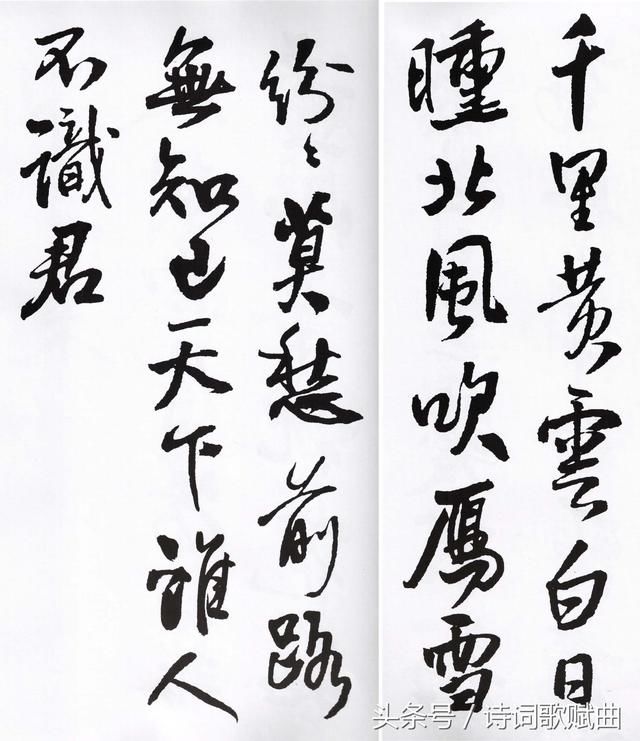 千里黄雲白日
曛北風吹雁雪
紛々莫愁前路
無知己天下誰人
不識君
头条号／诗词歌赋曲